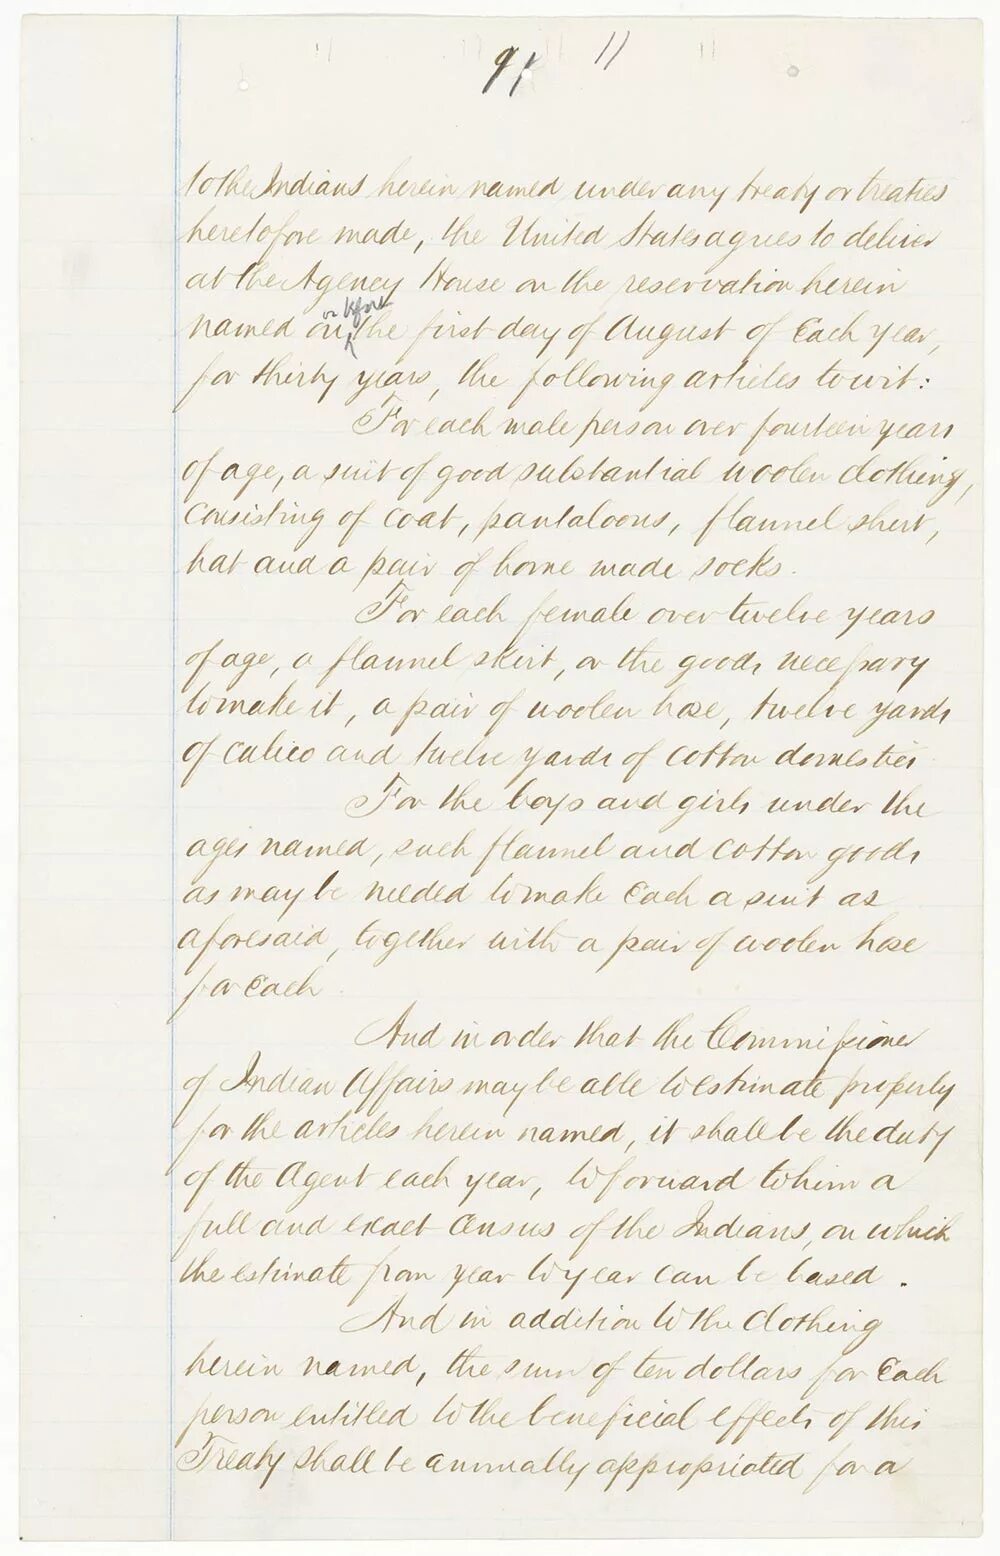 9 11
to the Indians herein named under any treaty or treaties
heretofore made, the United States agrees to deliver
at the Agency House on the reservation herein
or before
named on, the first day of August of Each year,
for thirty years, the following articles to wit:
For each male person over fourteen years
of age, a suit of good substantial woolen clothing,
consisting of coat, pantaloons, flannel shirt,
hat and a pair of home made socks.
For each female over twelve years
of age, a flannel skirt, or the goods necessary
to make it, a pair of woolen hose, twelve yards
of calico and twelve yards of cotton domestics
For the boys and girls under the
ages named, such flannel and cotton goods
as may be needed to make Each a suit as
aforesaid, together with a pair of woolen hose
for Each.
And in order that the Commissioner
of Indian Affairs may be able to estimate properly
for the articles herein named, it shall be the duty
of the Agent each year, to forward to him a
full and exact census of the Indians, on which
the estimate from year to year can be based.
And in addition to the Clothing
herein named, the sum of ten dollars for Each
person entitled to the beneficial effects of this
Treaty shall be annually appropriated for a